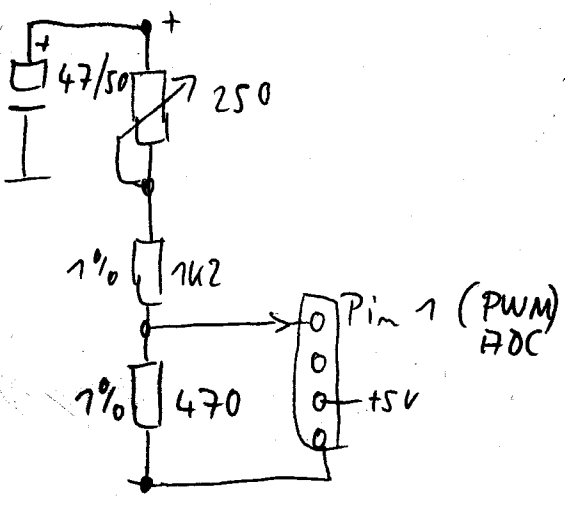 +
+
47/50
250
1%
1k2
Pin 1 (PWM)
ADC
1%
470
+5V